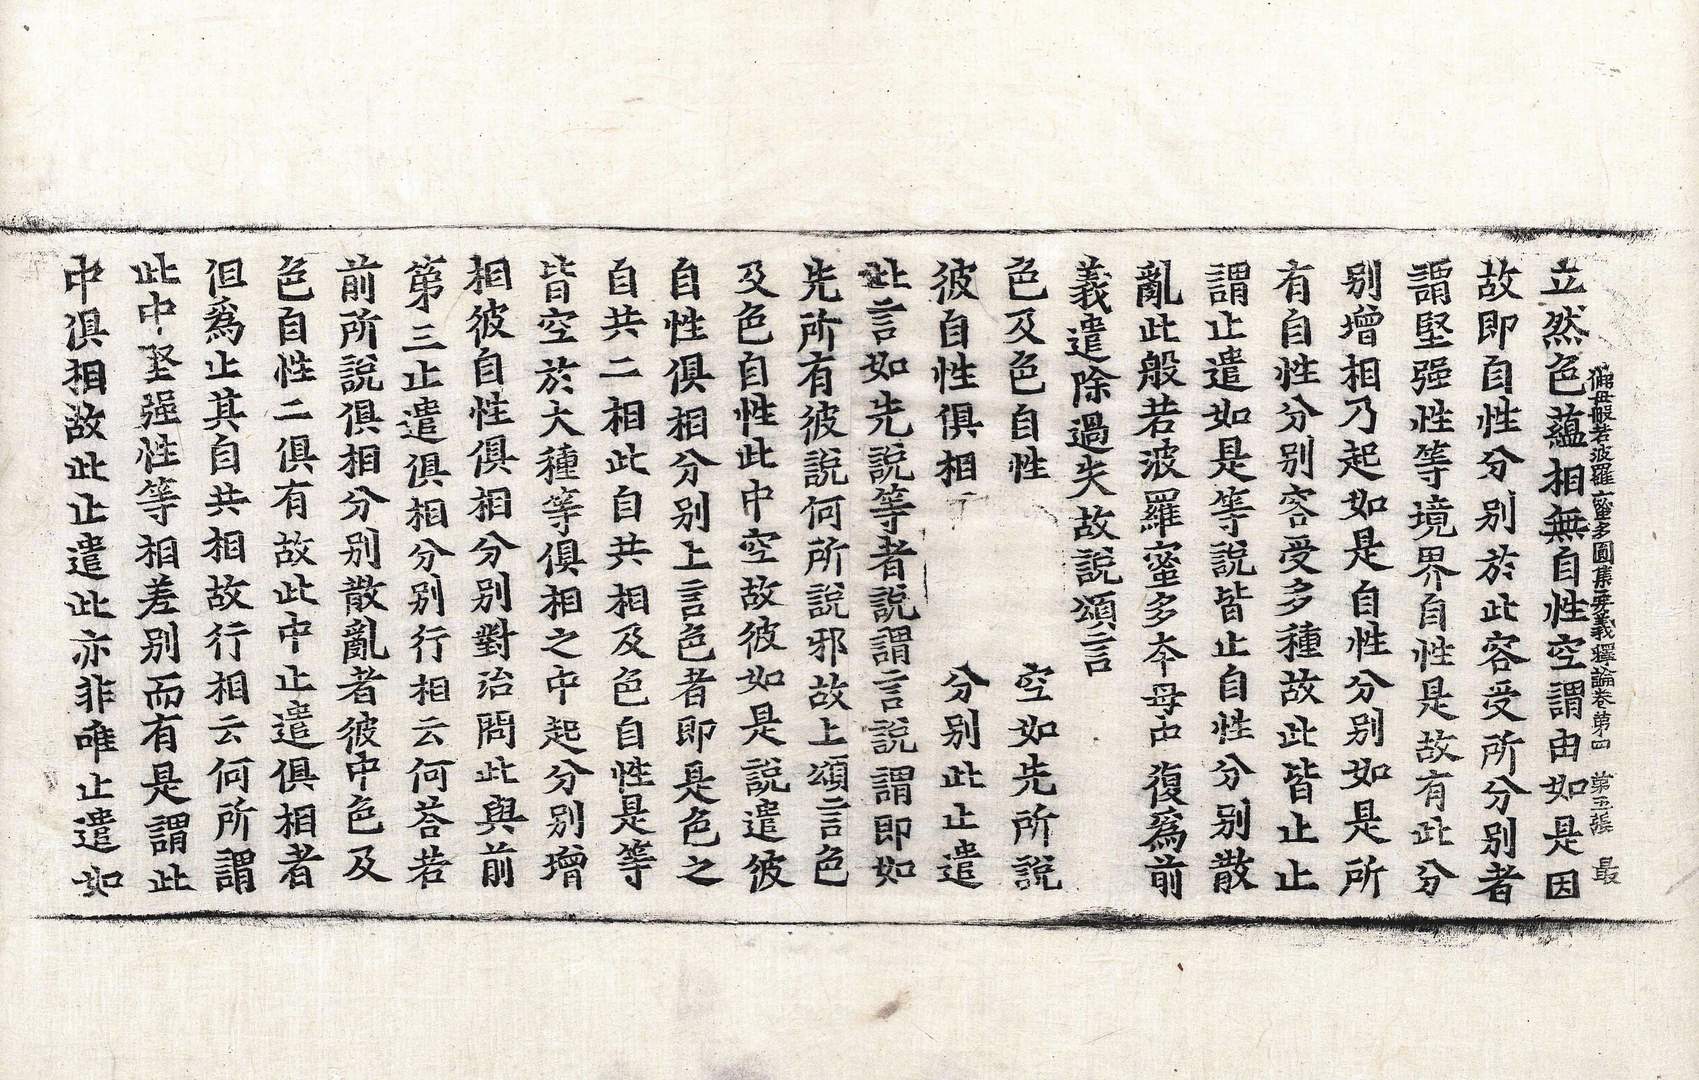 立然色蘊相無自性空謂由如是因
佛母般若波羅蜜多圓集要義釋論卷第四 第五張 最
故即自性分別於此容受所分別者
謂堅强性等境界自性是故有此分
別增相乃起如是自性分別如是所
有自性分別容受多種故此皆止止
謂止遣如是等說皆止自性分別散
亂此般若波羅蜜多夲母中復爲前
義遣除過失故說頌言
色及色自性 空如先所說
彼自性俱相 分別此止遣
此言如先說等者說謂言說謂即如
先所有彼說何所說邪故上頌言色
及色自性此中空故彼如是說遣彼
自性俱相分別上言色者即是色之
自共二相此自共相及色自性是等
皆空於大種等俱相之中起分別增
相彼自性俱相分別對治問此與前
第三止遣俱相分別行相云何荅若
前所說俱相分別散亂者彼中色及
色自性二俱有故此中止遣俱相者
但爲止其自共相故行相云何所謂
此中堅强性等相差別而有是謂此
中俱相故此止遣此亦非唯止遣如